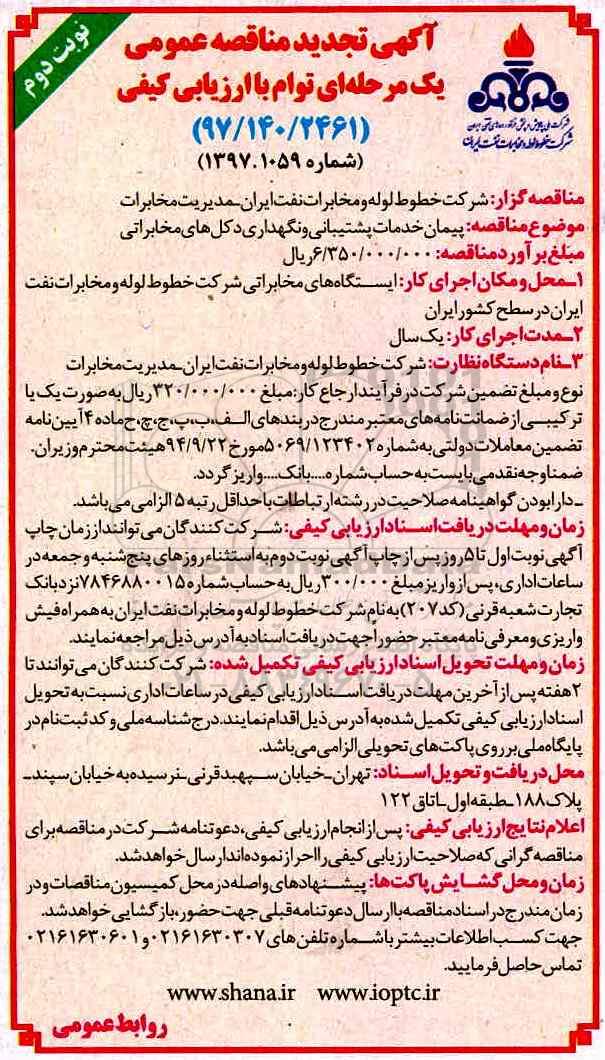 نوبت دوم
آگهی تجدید مناقصه عمومی
یک مرحله‌ای توام با ارزیابی کیفی
(۹۷/۱۴۰/۲۴۶۱)
(شماره ۱۳۹۷.۱۰۵۹)
شرکت ملی پالایش و پخش فرآورده‌های نفتی ایران
شرکت خطوط لوله و مخابرات نفت ایران
مناقصه گزار: شرکت خطوط لوله و مخابرات نفت ایران ـ مدیریت مخابرات
موضوع مناقصه: پیمان خدمات پشتیبانی و نگهداری دکل‌های مخابراتی
مبلغ برآورد مناقصه: ۶/۳۵۰/۰۰۰/۰۰۰ ریال
۱ـ محل و مکان اجرای کار: ایستگاه‌های مخابراتی شرکت خطوط لوله و مخابرات نفت
ایران در سطح کشور ایران
۲ـ مدت اجرای کار: یک سال
۳ـ نام دستگاه نظارت: شرکت خطوط لوله و مخابرات نفت ایران ـ مدیریت مخابرات
نوع و مبلغ تضمین شرکت در فرآیند ارجاع کار: مبلغ ۳۲۰/۰۰۰/۰۰۰ ریال به صورت یک یا
ترکیبی از ضمانت‌نامه‌های معتبر مندرج در بندهای الف، ب، پ، ج، چ، ح ماده ۴ آیین نامه
تضمین معاملات دولتی به شماره ۵۰۶۹/۱۲۳۴۰۲ مورخ ۹۴/۹/۲۲ هیئت محترم وزیران.
ضمنا وجه نقد می بایست به حساب شماره .... بانک .... واریز گردد.
ـ دارا بودن گواهینامه صلاحیت در رشته ارتباطات با حداقل رتبه ۵ الزامی می‌باشد.
زمان و مهلت دریافت اسناد ارزیابی کیفی: شرکت کنندگان می توانند از زمان چاپ
آگهی نوبت اول تا ۵ روز پس از چاپ آگهی نوبت دوم به استثناء روزهای پنج شنبه و جمعه در
ساعات اداری، پس از واریز مبلغ ۳۰۰/۰۰۰ ریال به حساب شماره ۷۸۴۶۸۸۰۰۱۵ نزد بانک
تجارت شعبه قرنی (کد ۲۰۷) به نام شرکت خطوط لوله و مخابرات نفت ایران به همراه فیش
واریزی و معرفی نامه معتبر حضوراً جهت دریافت اسناد به آدرس ذیل مراجعه نمایند.
زمان و مهلت تحویل اسناد ارزیابی کیفی تکمیل شده: شرکت کنندگان می توانند تا
۲ هفته پس از آخرین مهلت دریافت اسناد ارزیابی کیفی در ساعات اداری نسبت به تحویل
اسناد ارزیابی کیفی تکمیل شده به آدرس ذیل اقدام نمایند. درج شناسه ملی و کد ثبت نام در
پایگاه ملی بر روی پاکت‌های تحویلی الزامی می باشد.
محل دریافت و تحویل اسناد: تهران ـ خیابان سپهبد قرنی ـ نرسیده به خیابان سپند ـ
پلاک ۱۸۸ ـ طبقه اول ـ اتاق ۱۲۲
اعلام نتایج ارزیابی کیفی: پس از انجام ارزیابی کیفی، دعوتنامه شرکت در مناقصه برای
مناقصه گرانی که صلاحیت ارزیابی کیفی را احراز نموده اند ارسال خواهد شد.
زمان و محل گشایش پاکت‌ها: پیشنهادهای واصله در محل کمیسیون مناقصات و در
زمان مندرج در اسناد مناقصه با ارسال دعوتنامه قبلی جهت حضور، بازگشایی خواهد شد.
جهت کسب اطلاعات بیشتر با شماره تلفن های ۰۲۱۶۱۶۳۰۳۰۷ و ۰۲۱۶۱۶۳۰۶۰۱
تماس حاصل فرمایید.
www.shana.ir www.ioptc.ir
روابط عمومی